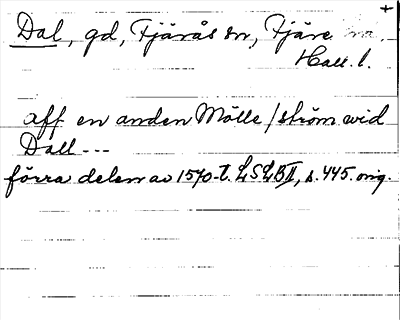 +
Dal, gd, Fjärås sn, Fjäre hd.
Hall. l.
aff en anden Mölle/ström wid
Dall ---
förra delen av 1570-t. LSLB II, s. 445. orig.